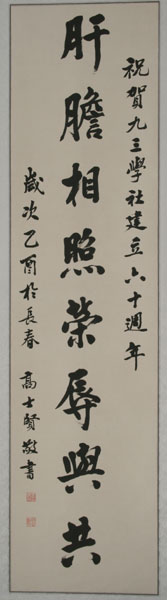 祝賀九三學社建立六十週年
肝膽相照榮辱與共
歲次乙酉於長春
高士賢敬書